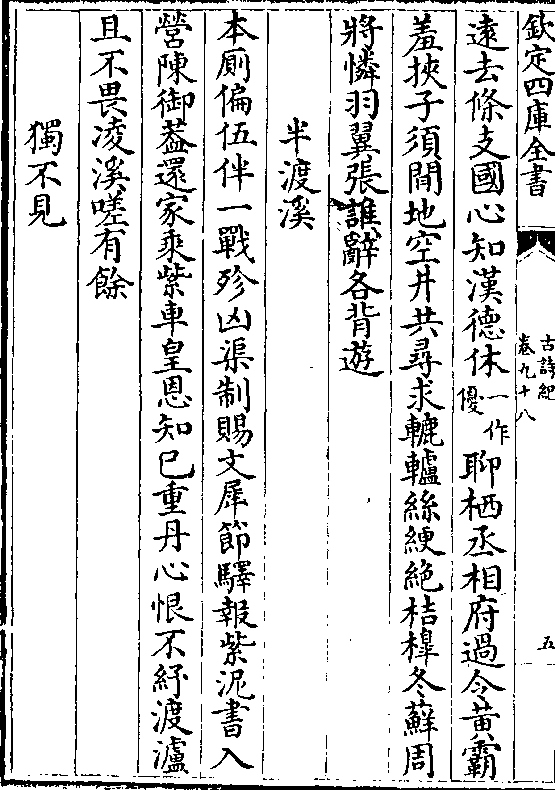 欽定四庫全書
古詩紀
卷九十八
五
逺去條支國心知漢德休一作優聊栖丞相府過令黄霸
羞挾子須閒地空井共尋求轆轤絲綆絶桔橰冬蘚周
將憐羽翼張誰辭各背遊
半渡溪
本厠偏伍伴一戰殄凶渠制賜文犀節驛報紫泥書入
營陳御葢還家乘紫車皇恩知已重丹心恨不紓渡瀘
且不畏凌溪嗟有餘
獨不見